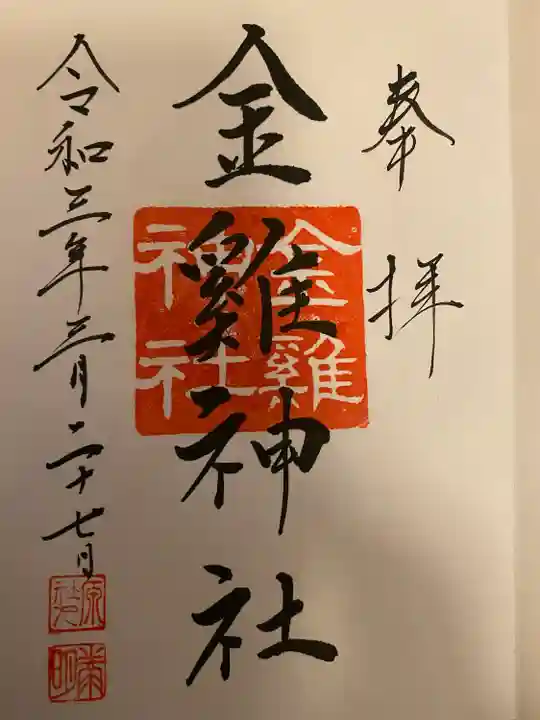 奉拝
金雞神社
金雞
神社
令和三年三月二十七日